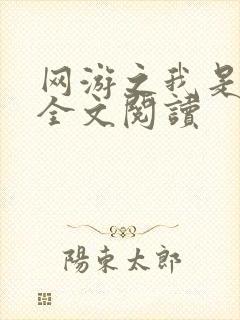 网游之我是
全文閱讀
陽東太郎